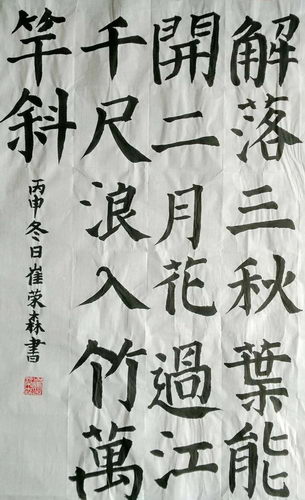 解落三秋葉能
開二月花過江
千尺浪入竹萬
竿斜
丙申冬日崔荣森書